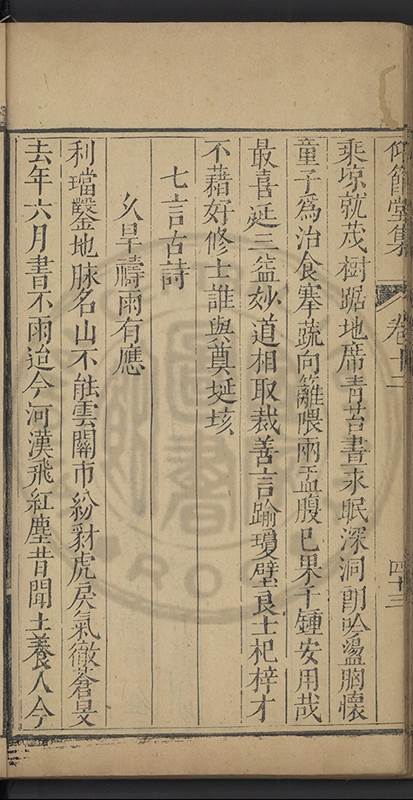 仰節堂集 卷十二 四十三
乘凉就茂樹踞地席青苔書永眠深洞朗吟盪胸懷
童子為治食搴蔬向籬隈兩盂腹已果千鍾安用哉
最喜延三益妙道相取裁善言踰瓊璧良士杞梓才
不藉好修士誰與奠埏垓
七言古詩
久旱禱雨有應
利璫鑿地脉名山不能雲關市紛豺虎戾氣徹蒼旻
去年六月書不雨迨今河漢飛紅塵昔聞土養人今